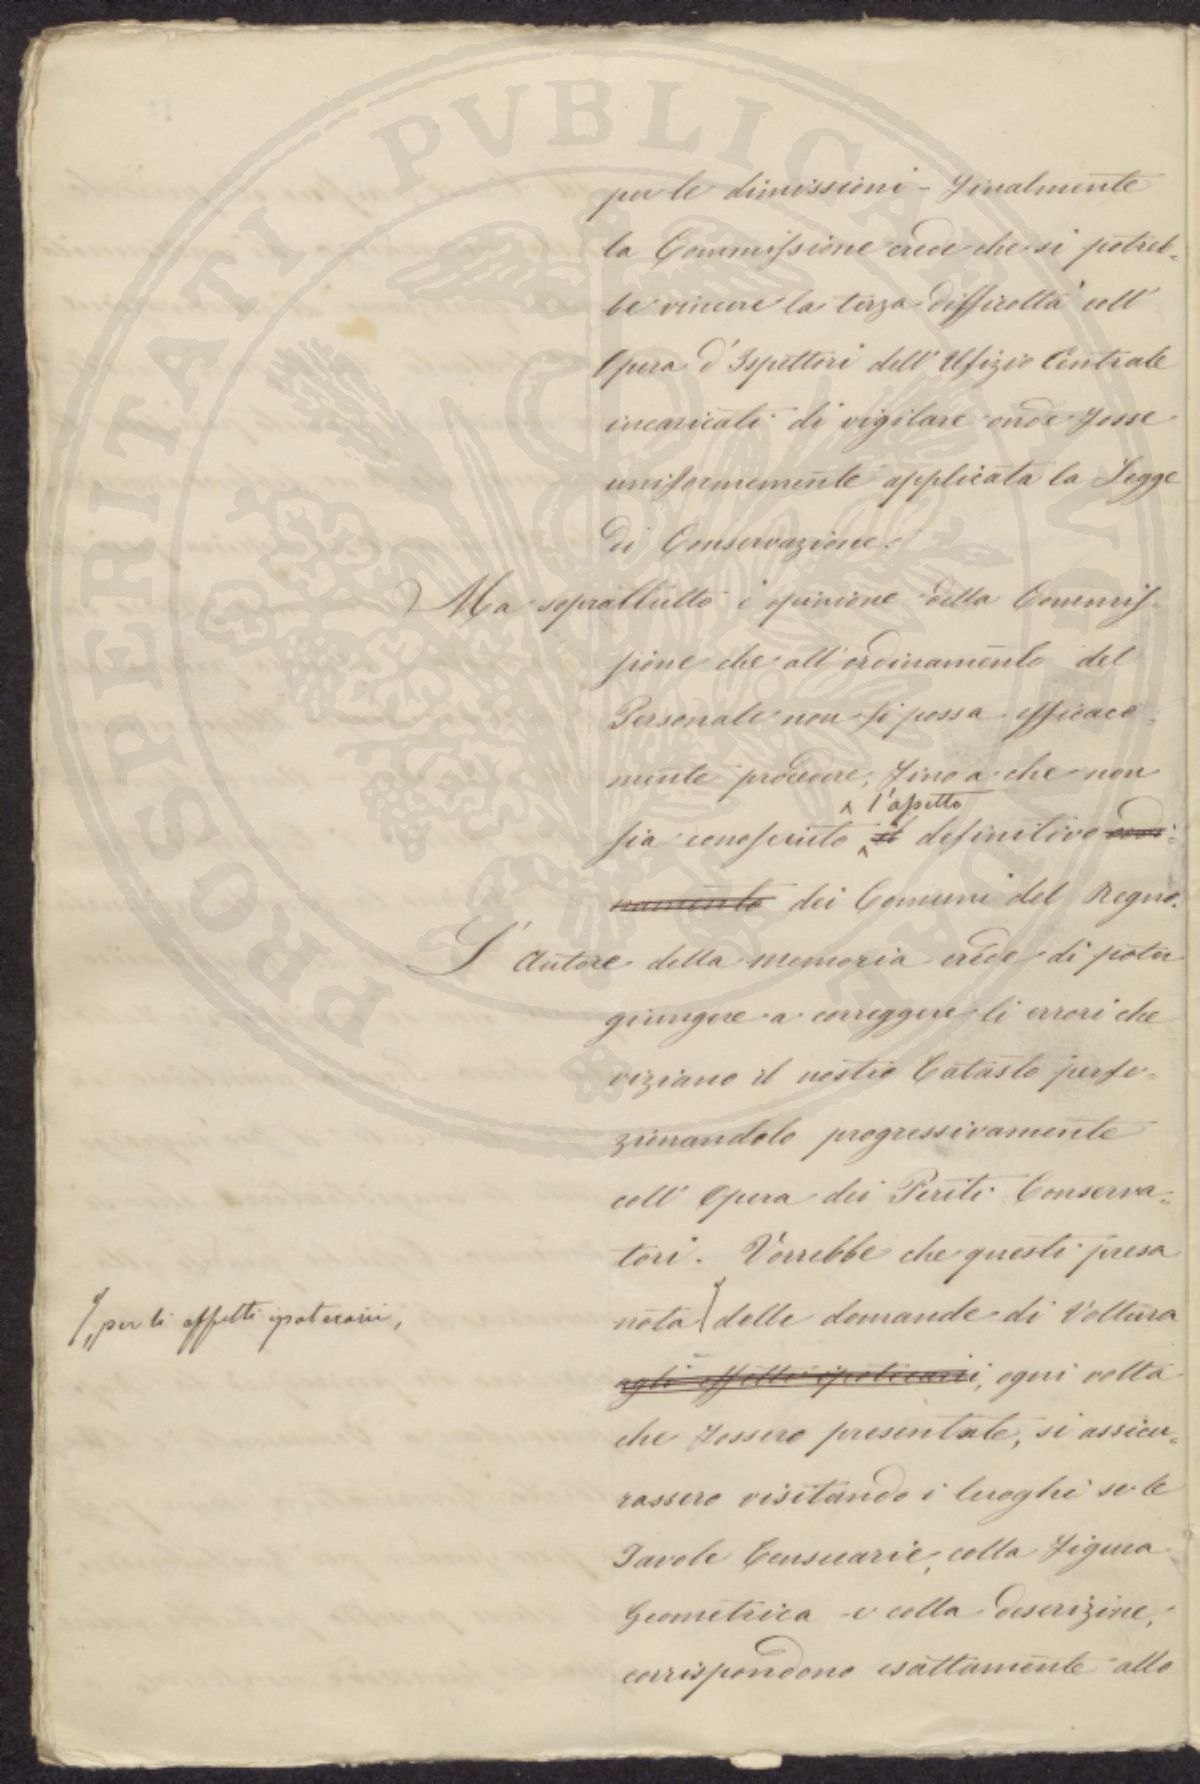 per le dimissioni - Finalmente
la Commissione crede che si potreb=
be vincere la terza difficoltà coll'
Opera d'Ispettori dell'Ufizio Centrale
incaricati di vigilare onde fosse
uniformemente applicata la Legge
di Conservazione.
Ma soprattutto è opinione della Commis-
sione che all'ordinamento del
Personale non si possa efficace-
mente provvedere, fino a che non
l'assetto
sia conosciuto il definitivo ordi-
namento dei Comuni del Regno.
L'Autore della memoria crede di poter
giungere a correggere li errori che
viziano il nostro Catasto perfe=
zionandolo progressivamente
coll'Opera dei Periti Conserva=
tori. Vorrebbe che questi presa
nota delle domande di Voltura
per li effetti ipotecarii,
agli effetti ipotecarii, ogni volta
che fossero presentate, si assicu=
rassero visitando i luoghi se le
Tavole Censuarie, colla Figura
Geometrica e colla descrizione,
corrispondono esattamente allo
PROSPERITATI PVBLICAE